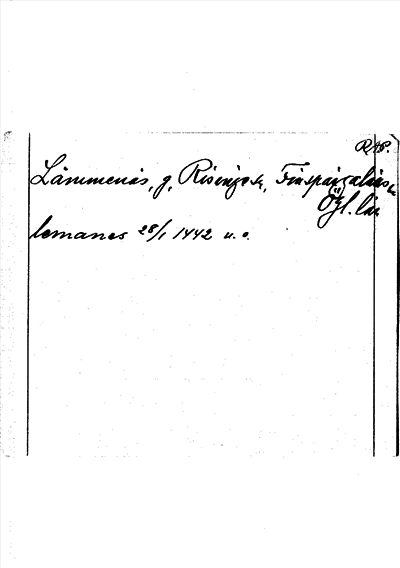 R 48.
Lämmenäs, g, Risinge sn, Finspångaläns
Ögl. län
lemanes 28/1 1442 u. o.